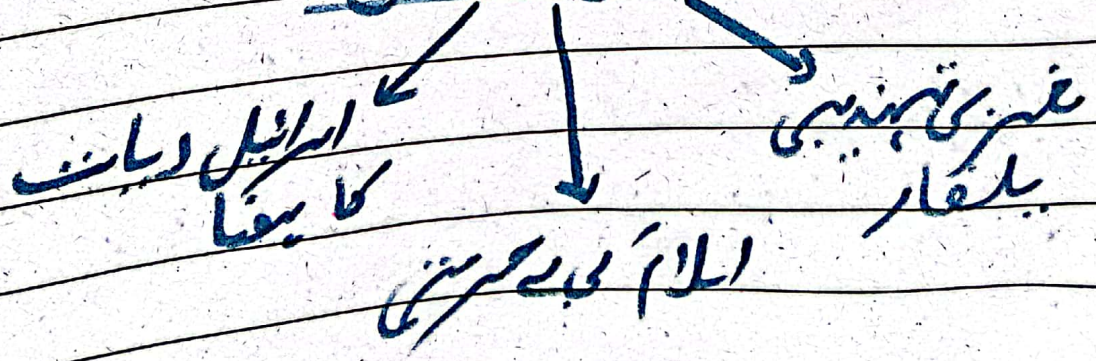 مغربی تہذیبی
یلغار
اسلام کی بے حرمتی
اسرائیل ریاست
کا